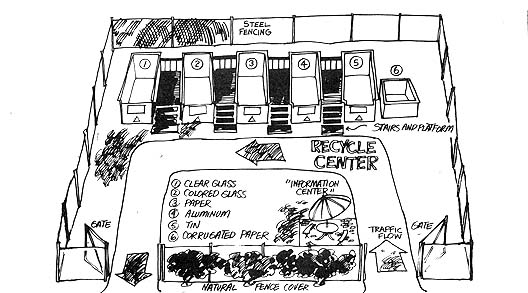 STEEL
FENCING
1
2
3
4
5
6
STAIRS AND PLATFORM
RECYCLE
CENTER
1 CLEAR GLASS
2 COLORED GLASS
3 PAPER
4 ALUMINUM
5 TIN
6 CORRUGATED PAPER
"INFORMATION
CENTER"
GATE
TRAFFIC
FLOW
GATE
NATURAL FENCE COVER